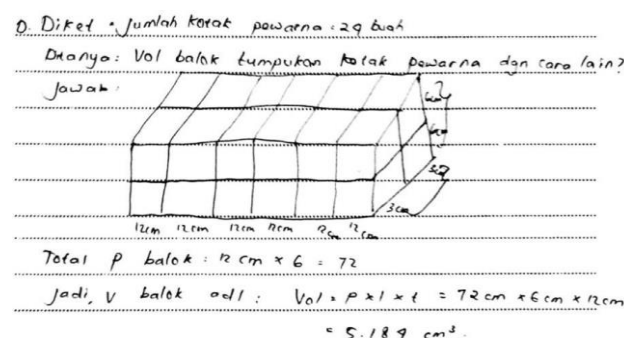 D. Diket • Jumlah kotak pewarna = 24 buah
Ditanya : Vol balok tumpukan kotak pewarna dgn cara lain?
Jawab :
6cm
6cm
3cm
3cm
12cm 12cm 12cm 12cm 12cm 12cm
Total P balok : 12 cm × 6 = 72
Jadi, V balok adl : Vol = P × l × t = 72 cm × 6 cm × 12 cm
= 5.184 cm³.